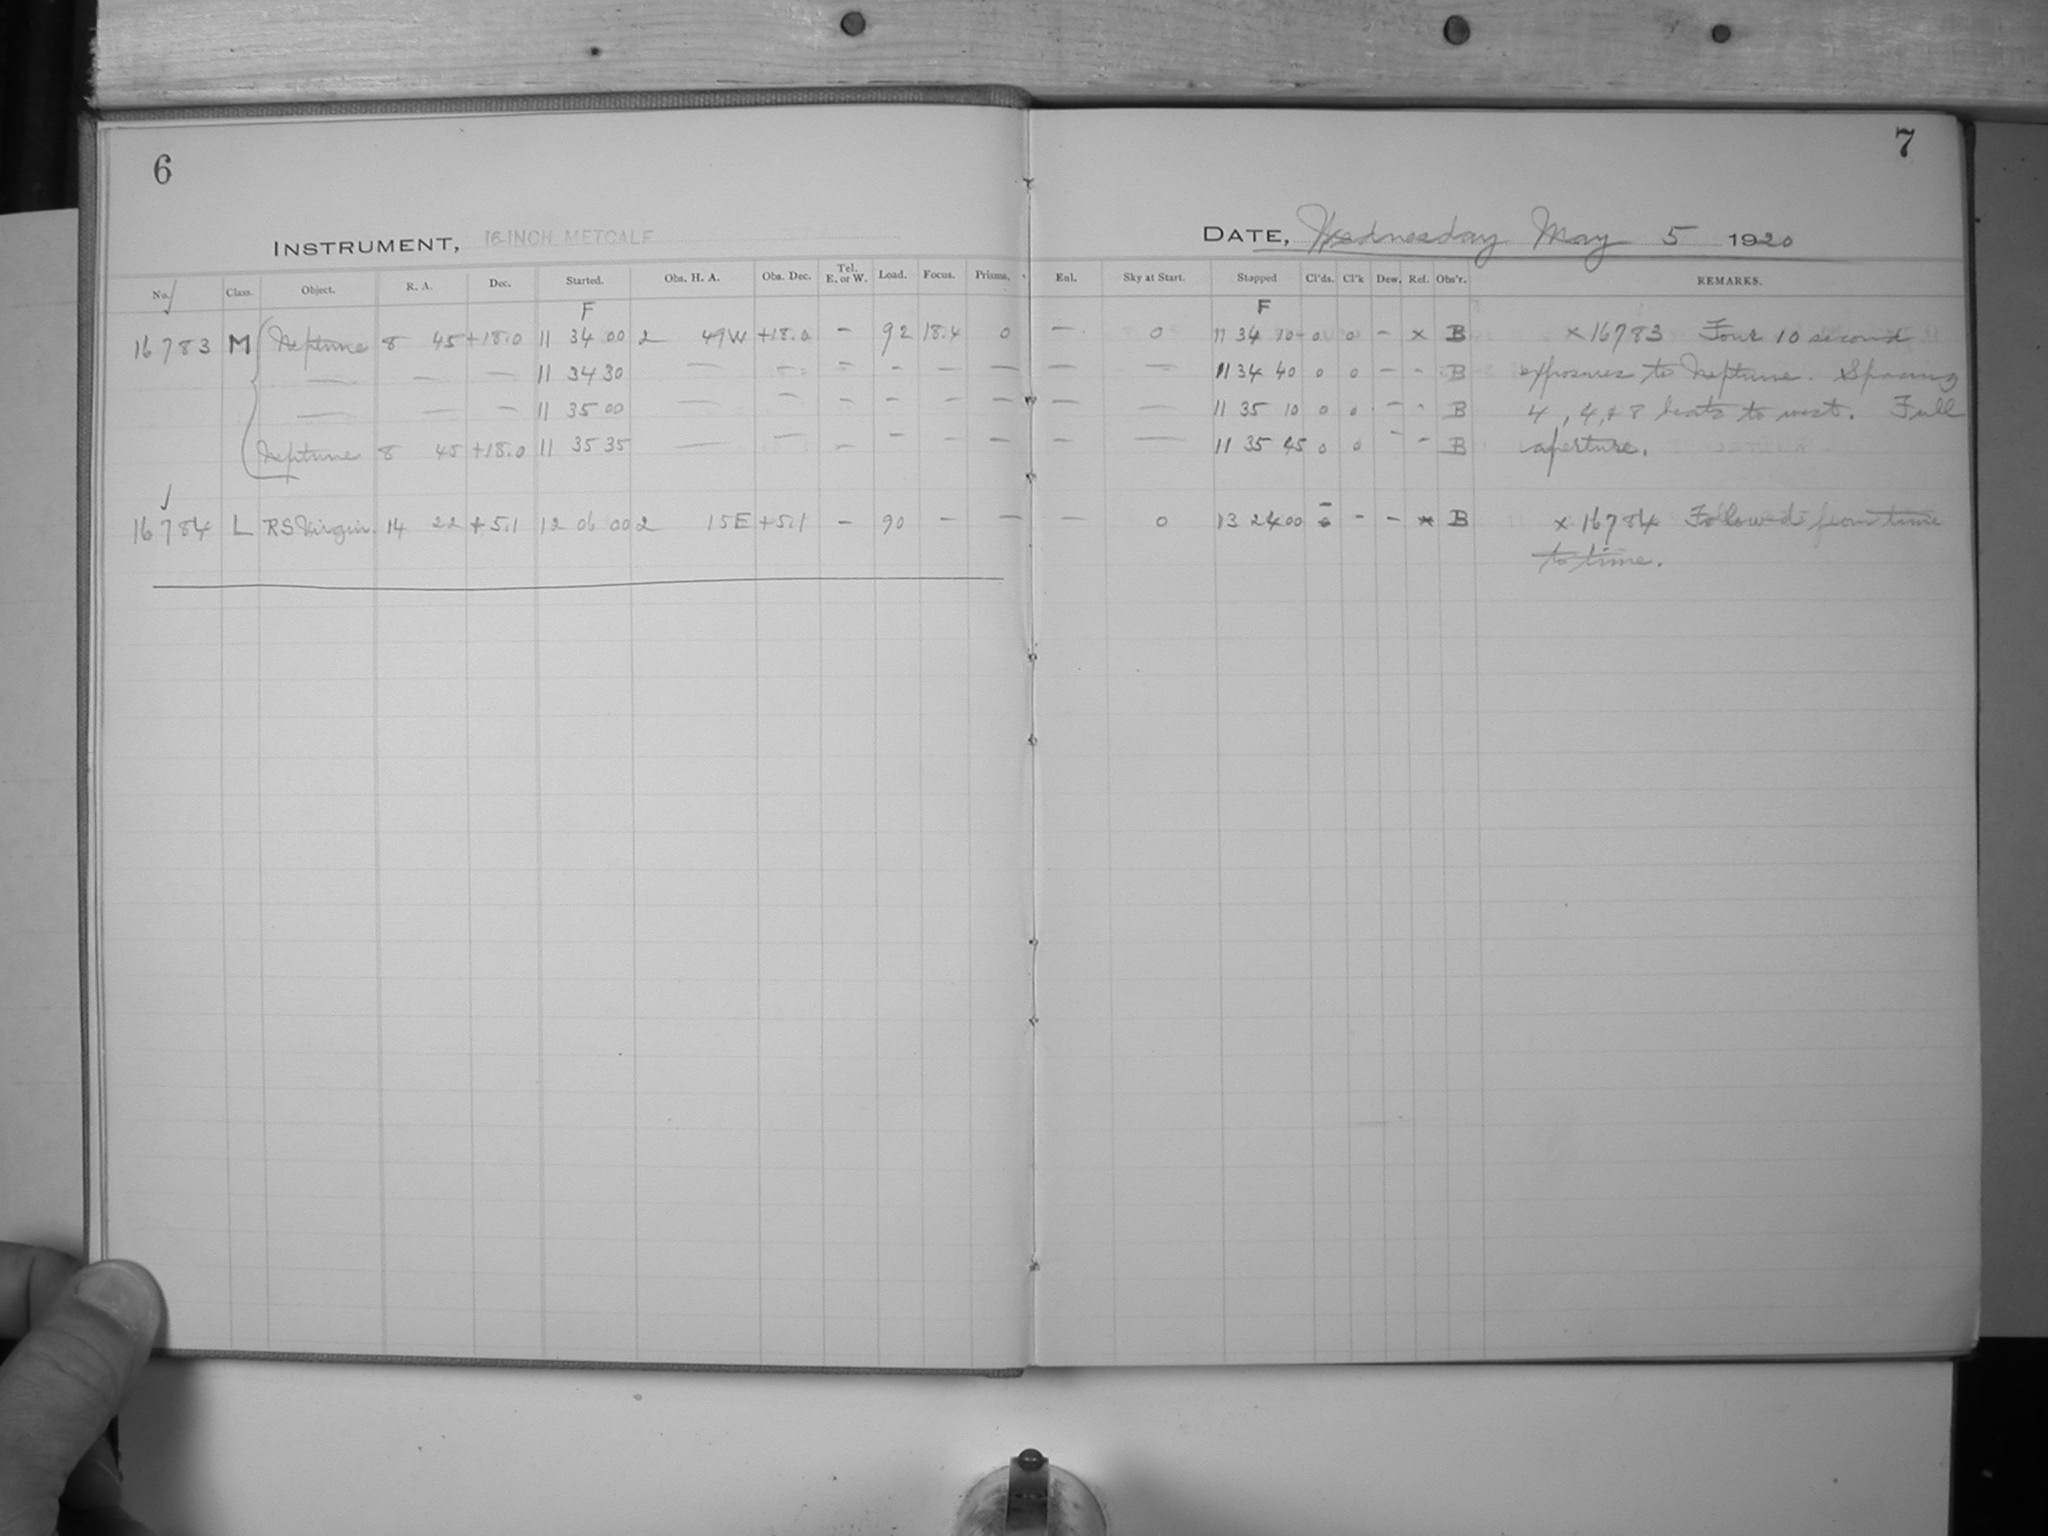 6
INSTRUMENT, 16-INCH METCALF
No. Class. Object. R. A. Dec. Started. Obs. H. A. Obs. Dec. Tel. E. or W. Load. Focus. Prisms.
F
16783 M Neptune 8 45 +18.0 11 34 00 2 49W +18.0 – 92 18.4 0
— — — 11 34 30 — — – – – –
— — — 11 35 00 — — – – – –
Neptune 8 45 +18.0 11 35 35 — — – – – –
16784 L RS Virgin. 14 22 +5.1 12 06 00 2 15E +5.1 – 90 – –
7
DATE, Wednesday May 5 1920
Sky at Start. Stopped Cl'ds. Cl'k Dew. Ref. Obs'r. REMARKS.
F
— 0 11 34 10 0 0 – x B x 16783 Four 10 second
— — 11 34 40 0 0 – - B exposures to Neptune. Spacing
— — 11 35 10 0 0 – - B 4, 4, & 8 beats to west. Full
— — 11 35 45 0 0 – – B aperture.
— 0 13 24 00 – – x B x 16784 Followed from time
to time.